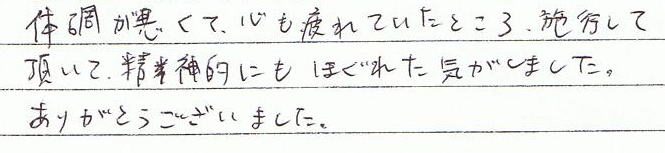 体調が悪くて、心も疲れていたところ、施行して
頂いて、精神的にも ほぐれた気がしました。
ありがとうございました。